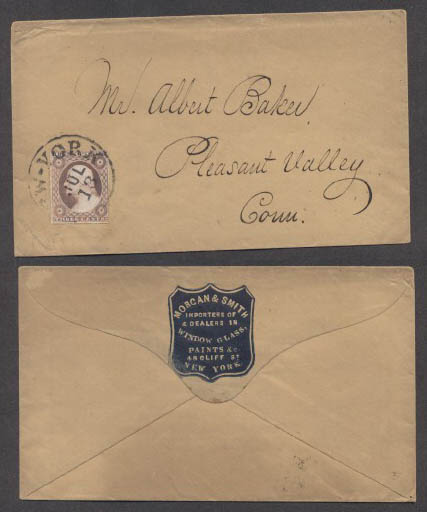 Mr. Albert Baker
Pleasant Valley
Conn.
W-YORK
JUL
13
MORGAN & SMITH
IMPORTERS OF
& DEALERS IN
WINDOW GLASS,
PAINTS &c.
48 CLIFF ST
NEW YORK